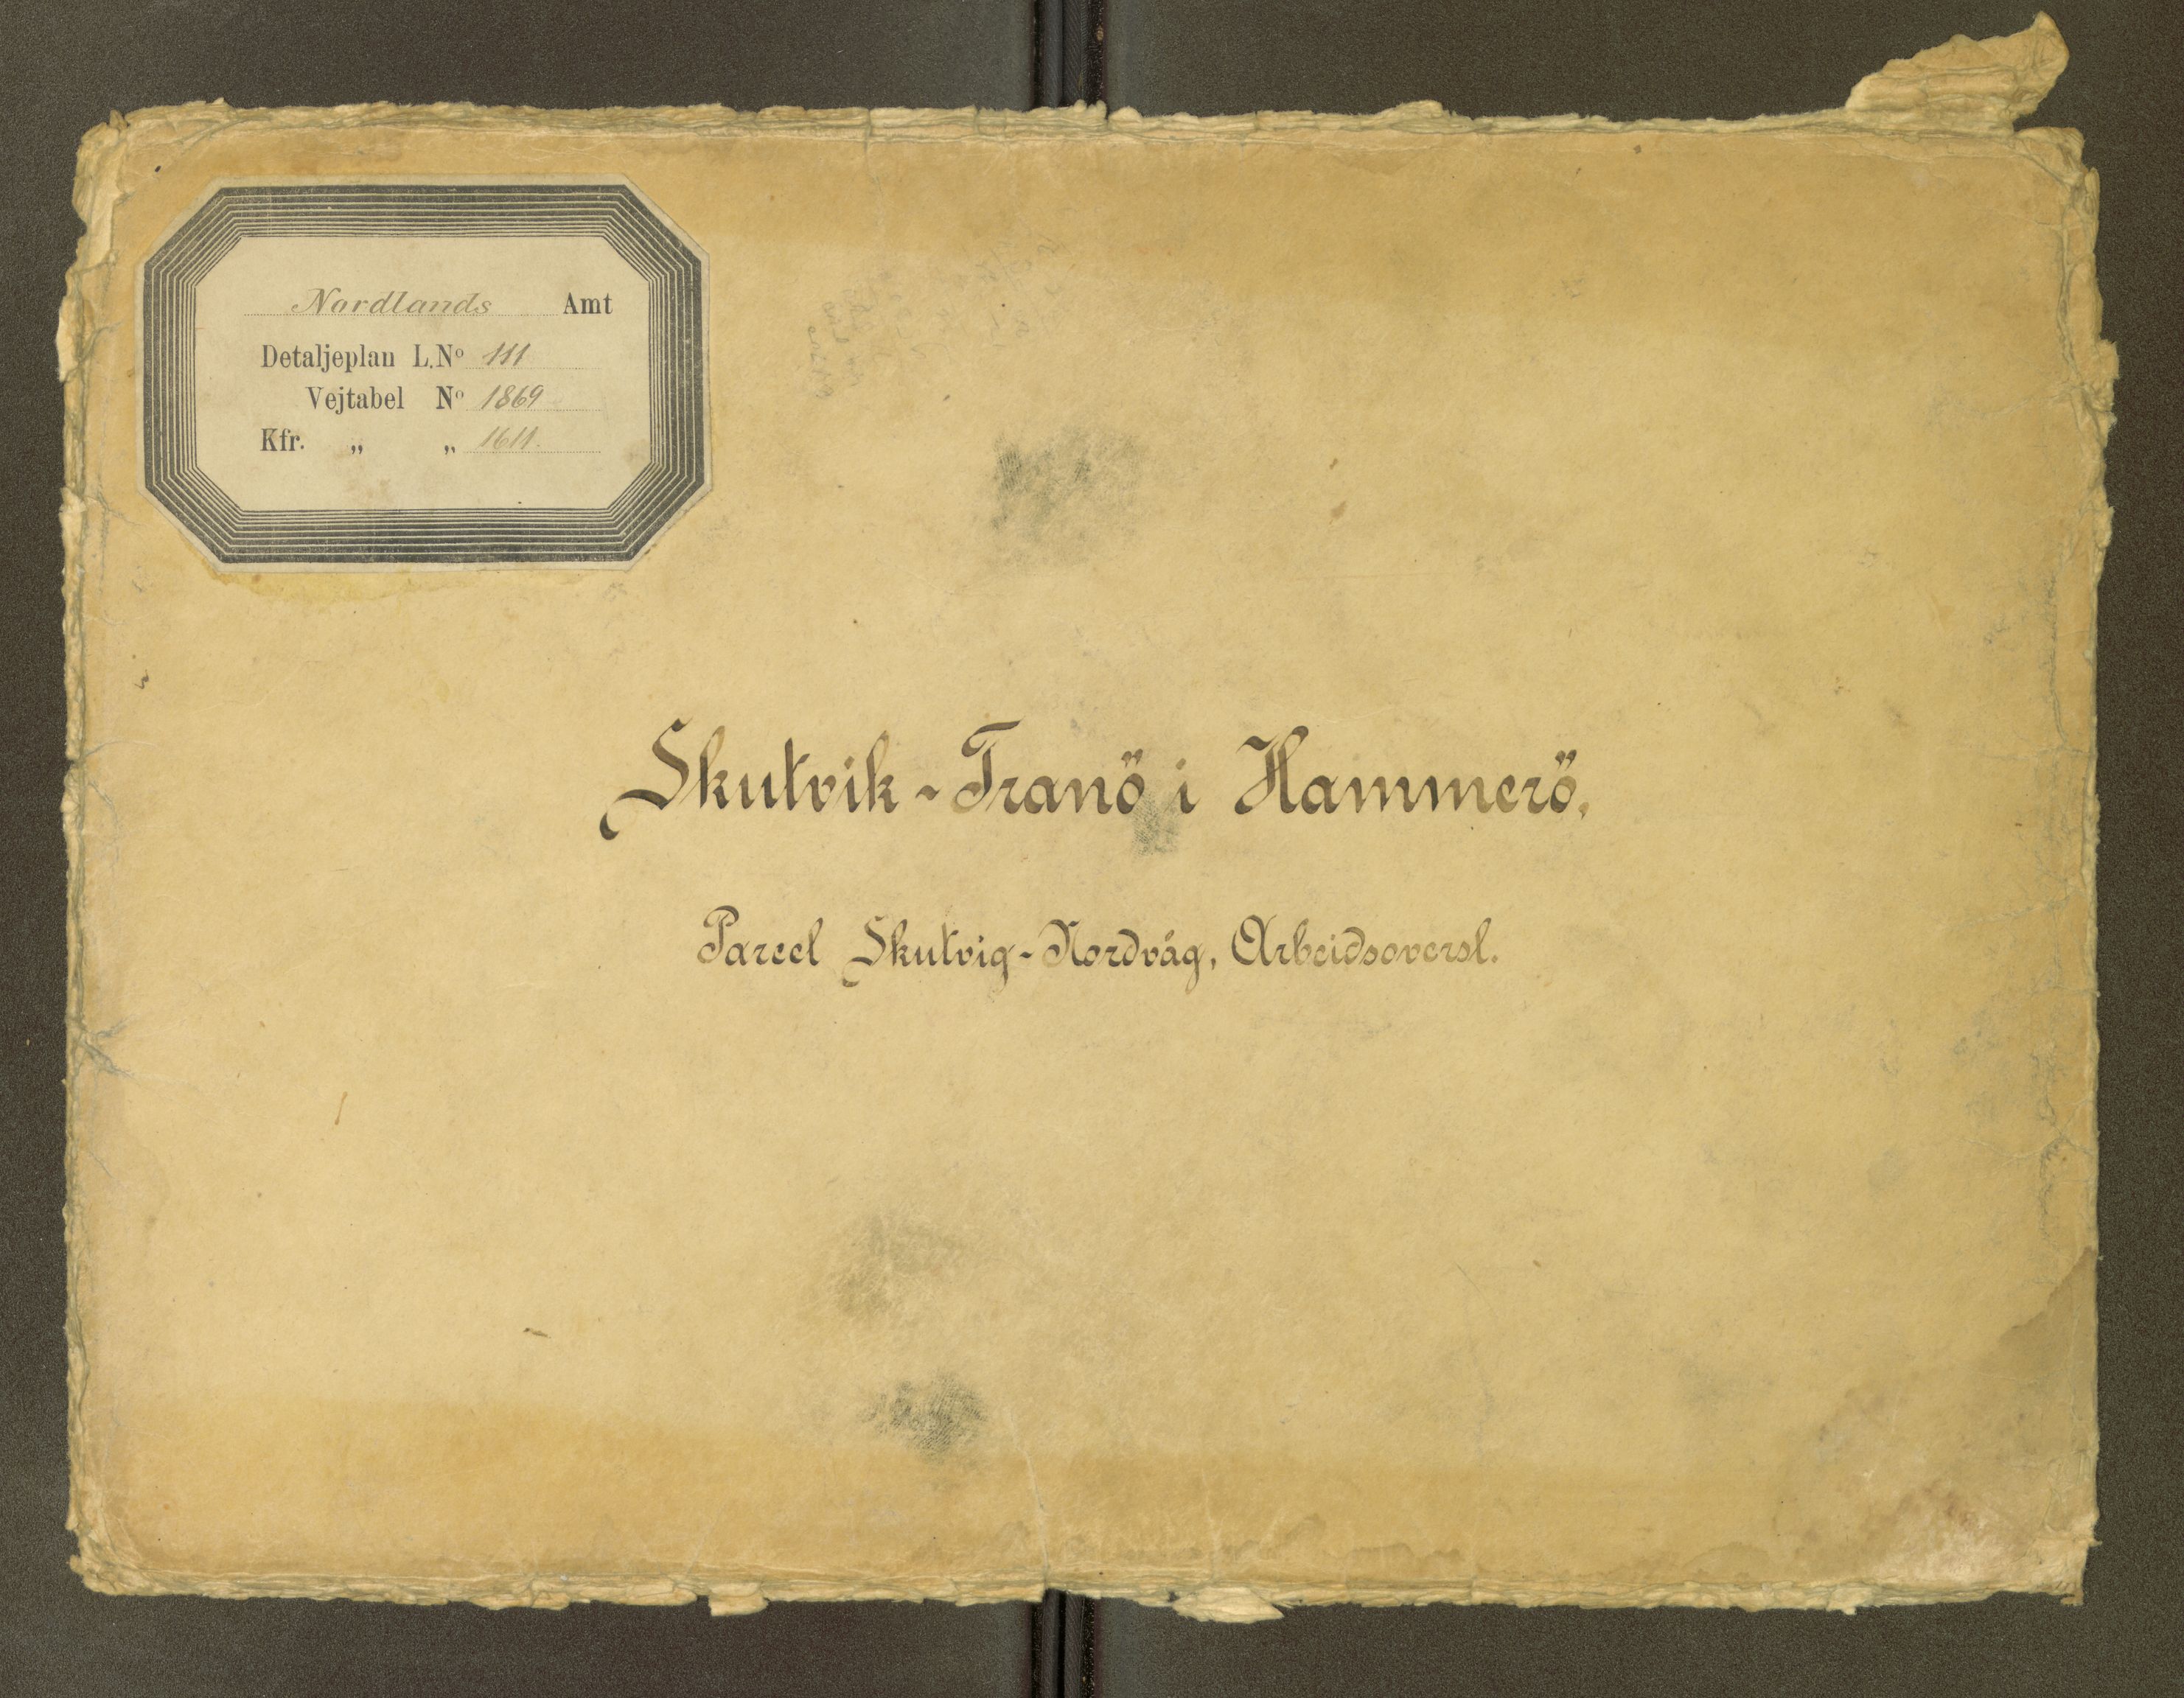 Nordlands Amt
Detaljeplan L.Nº 111
Vejtabel Nº 1869
Kfr. „ „ 1611.
Skutvik - Tranö i Hammerö.
Parcel Skutvig - Nordvåg, Arbeidsoversl.